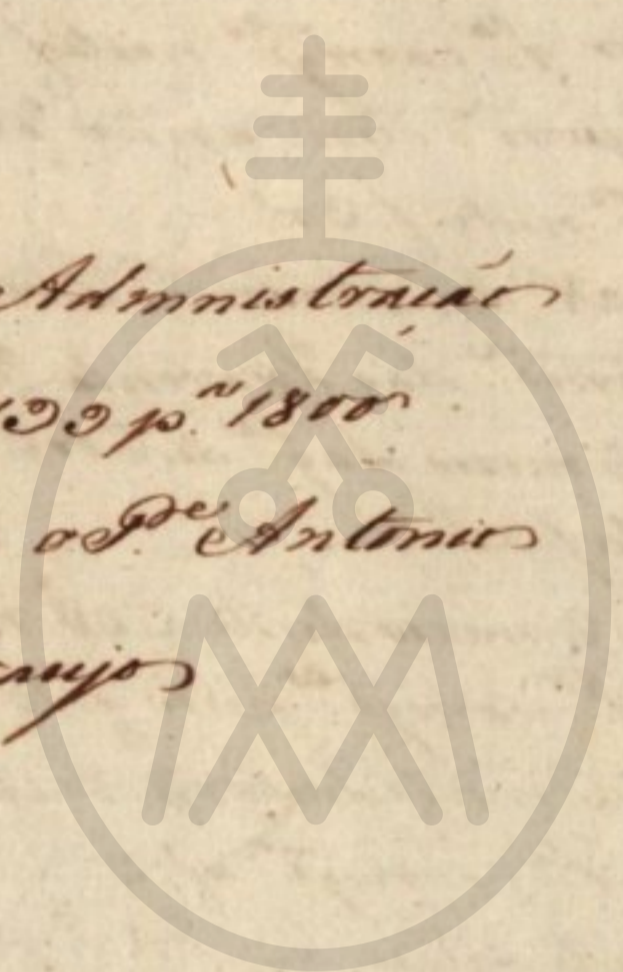 Admnistração
99 p.ª 1800
o P.e Antonio